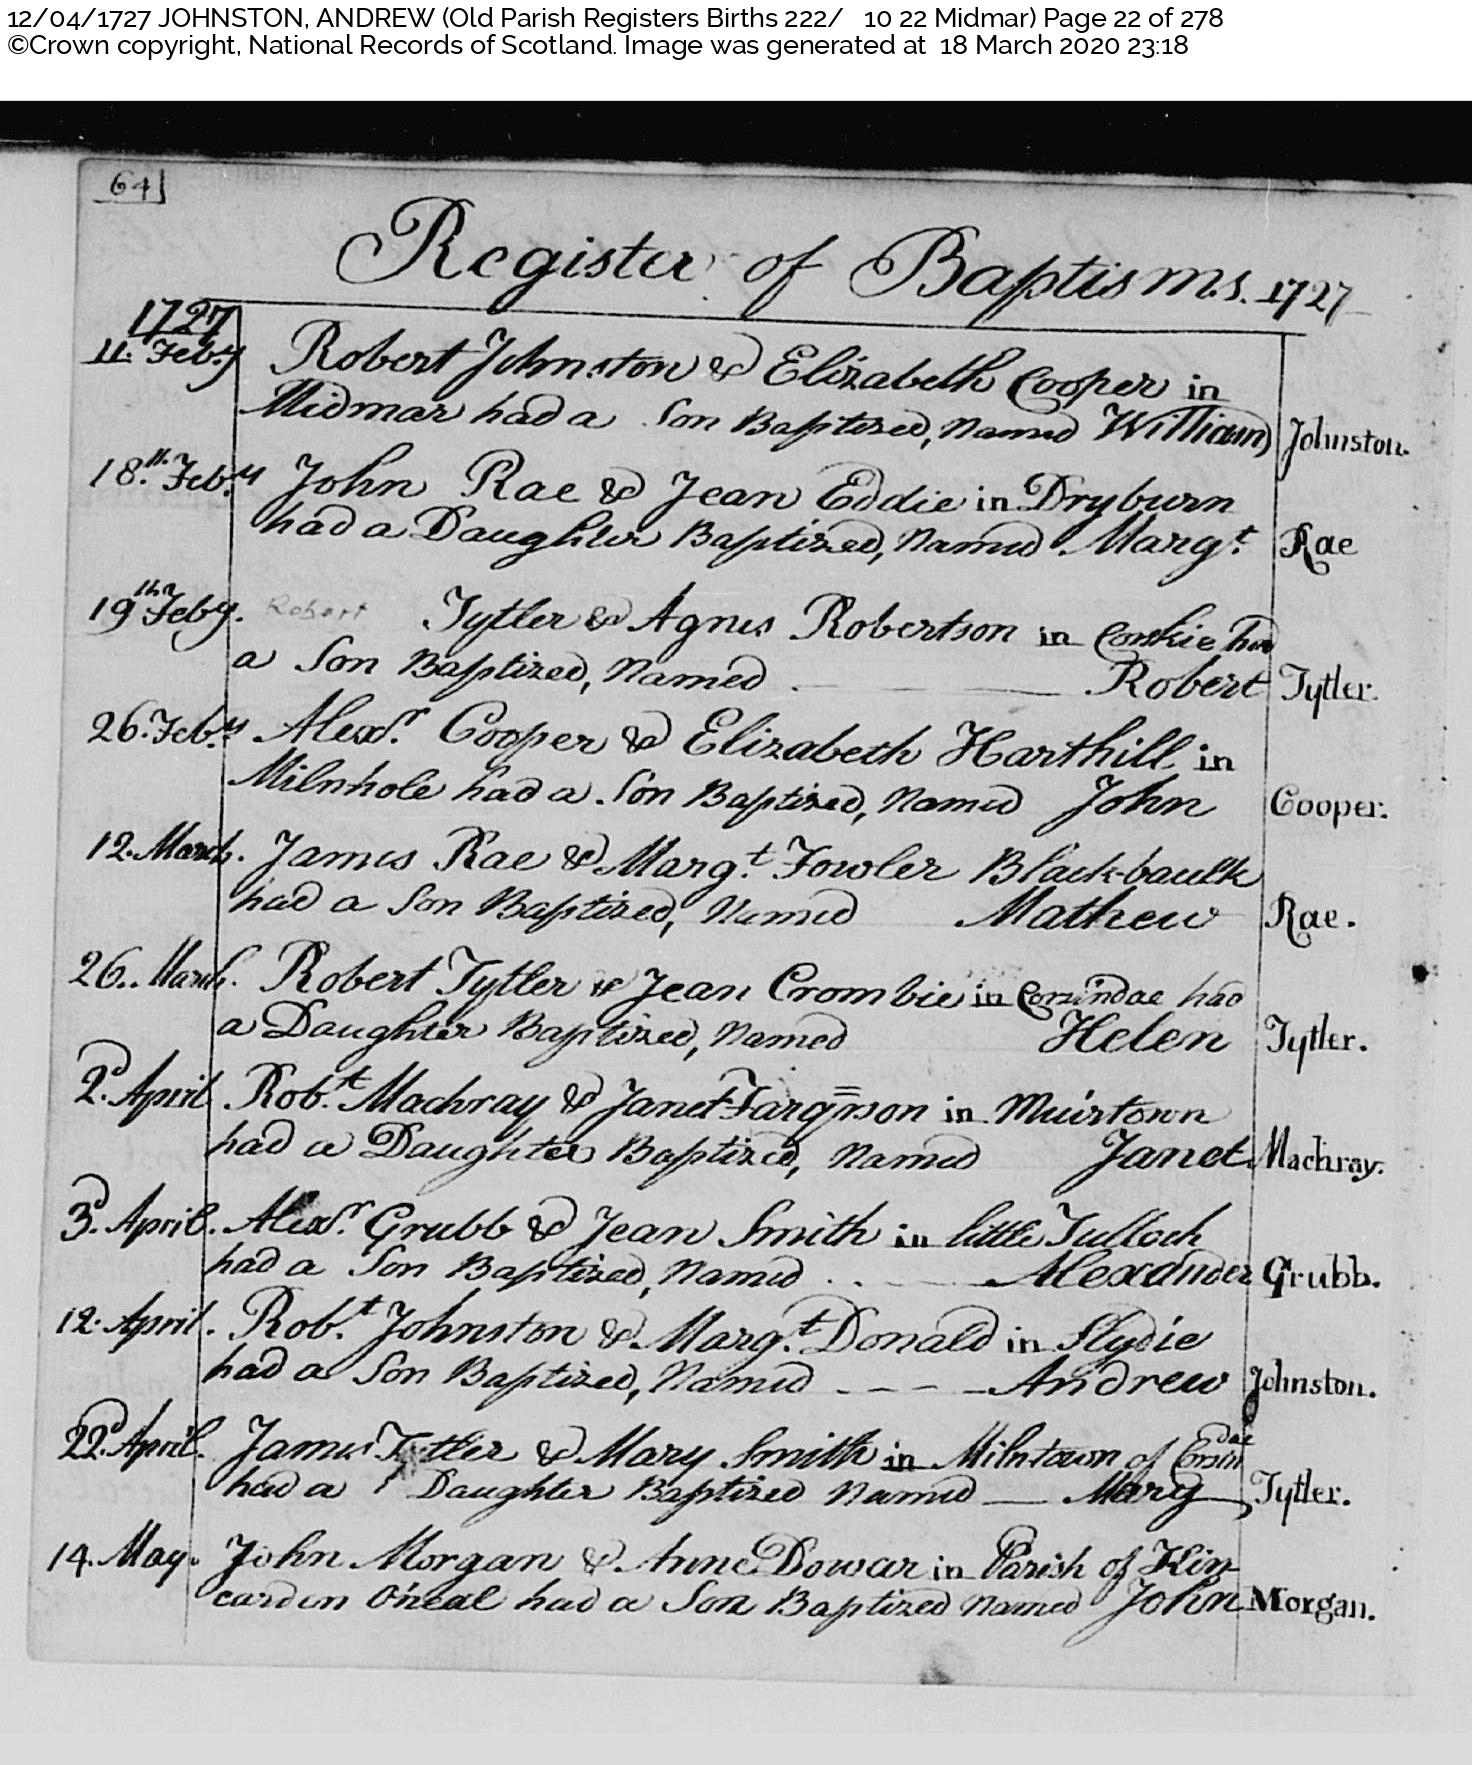 12/04/1727 JOHNSTON, ANDREW (Old Parish Registers Births 222/ 10 22 Midmar) Page 22 of 278
©Crown copyright, National Records of Scotland. Image was generated at 18 March 2020 23:18
64]
Register of Baptisms. 1727
1727
11. Feb.y Robert Johnston & Elizabeth Cooper in
Midmar had a Son Baptized, Named William Johnston.
18.th Feb.y John Rae & Jean Eddie in Dryburn
had a Daughter Baptized, Named Marg.t Rae
19th Feby. Robert Tytler & Agnes Robertson in Corskie had
a Son Baptized, Named Robert Tytler.
26. Feb.y Alex.r Cooper & Elizabeth Harthill in
Milnhole had a Son Baptized, Named John Cooper.
12. March. James Rae & Marg.t Fowler Black-baulk
had a Son Baptized, Named Mathew Rae.
26. March. Robert Tytler & Jean Crombie in Corsindae had
a Daughter Baptized, Named Helen Tytler.
2d. April Rob.t Machray & Janet Fargùson in Muirtown
had a Daughter Baptized, Named Janet Machray.
3d. April. Alex.r Grubb & Jean Smith in little Tulloch
had a Son Baptized, Named Alexander Grubb.
12. April. Rob.t Johnston & Marg.t Donald in Slydie
had a Son Baptized, Named Andrew Johnston.
22d. April. James Tytler & Mary Smith in Milntown of Corsindae
had a Daughter Baptized Named Mary Tytler.
14. May. John Morgan & Anne Dowar in Parish of Kin-
carden O'neal had a Son Baptized Named John Morgan.